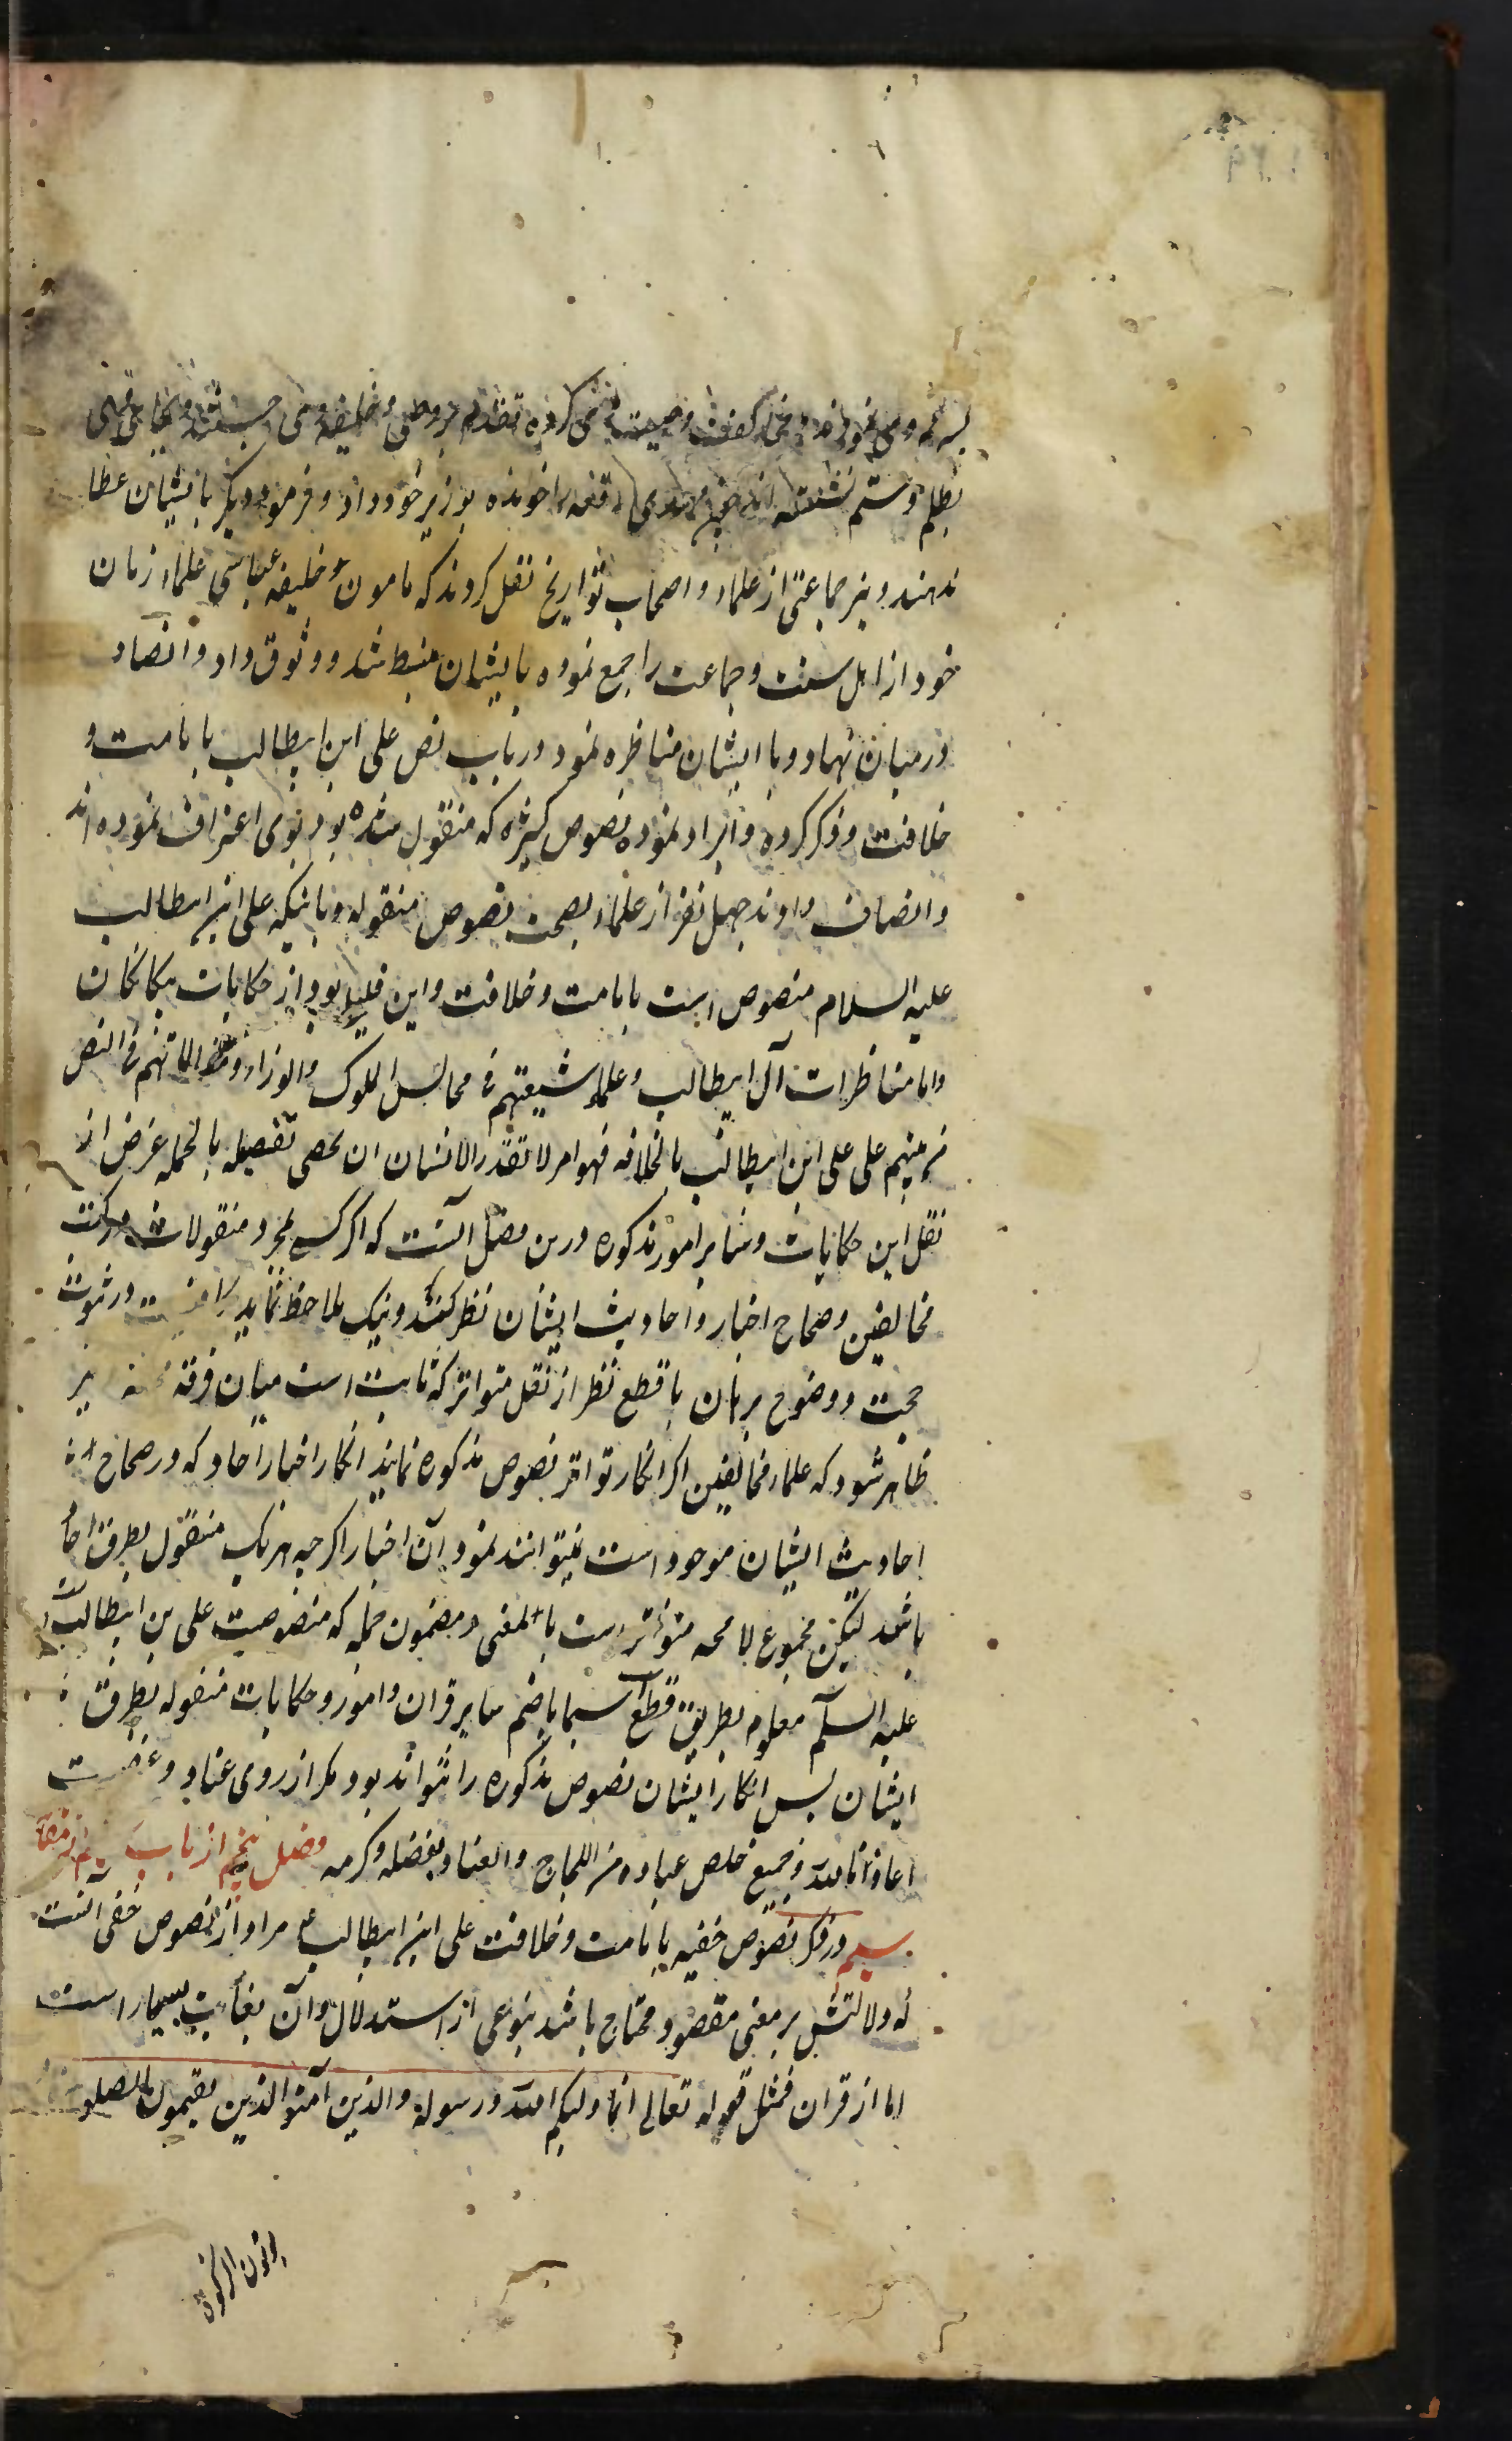 بظلم و ستم نشسته اند مهدی رقعه را خوانده بوزیر خود داد و فرمود دیگر بایشان عطا
ندهند و نیز جماعتی از علماء و اصحاب تواریخ نقل کردند که مامون خلیفه عباسی علماء زمان
خود از اهل سنت و جماعت را جمع نموده بایشان منبسط شد و وثوق داد و انصاف
در میان نهاد و با ایشان مناظره نمود در باب نص علی ابن ابیطالب بامامت و
خلافت و ذکر کرده و ایراد نموده نصوص کثیره که منقول شده بود بوی اعتراف نموده اند
و انصاف دادند چهل نفر از علماء بصحت نصوص منقوله و باینکه علی ابن ابیطالب
علیه السلام منصوص است بامامت و خلافت و این قلیلی بود از حکایات بیکانکان
واما مناظرات آل ابیطالب و علماء شیعتهم فی مجالس الملوک والوزراء و مقالاتهم فی النص
من نبیهم علی علی ابن ابیطالب بالخلافه فهو امر لا تقدر الانسان ان یحصی تفصیله بالجمله غرض از
نقل این حکایات و سایر امور مذکوره درین فصل آنست که اکر کسی بمجرد منقولات در کتب
مخالفین و صحاح اخبار و احادیث ایشان نظر کند و نیک ملاحظه نماید در ثبوت
حجت و وضوح برهان با قطع نظر از نقل متواتر که ثابت است میان فرقه
ظاهر شود که علماء مخالفین اکر انکار تواتر نصوص مذکوره نمایند انکار اخبار آحاد که در صحاح
احادیث ایشان موجود است نمیتوانند نمود و آن اخبار اکرچه هریک منقول بطرق احاد
باشد لیکن مجموع لا محه متواتر است بالمعنی و مضمون جمله که منصوصیت علی بن ابیطالب
علیه السلم معلوم بطریق قطع سیما باضم سایر قراین و امور و حکایات منقوله بطرق
ایشان پس انکار ایشان نصوص مذکوره را نتواند بود مکر از روی عناد و
اعاذنا الله و جمیع خلص عباده من اللجاج والعناد بفضله و کرمه فصل پنجم از باب
سیم در ذکر نصوص خفیه بامامت و خلافت علی ابن ابیطالب ع مراد از نصوص خفی آنست
که دلالتش بر معنی مقصود محتاج باشد بنوعی از استدلال و آن بغایت بسیار است
اما از قران فمثل قوله تعالی انما ولیکم الله ورسوله والذین آمنوا الذین یقیمون الصلوة
یوتون الزکوة